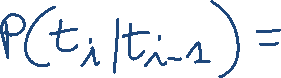 P(tᵢ|tᵢ₋₁) =